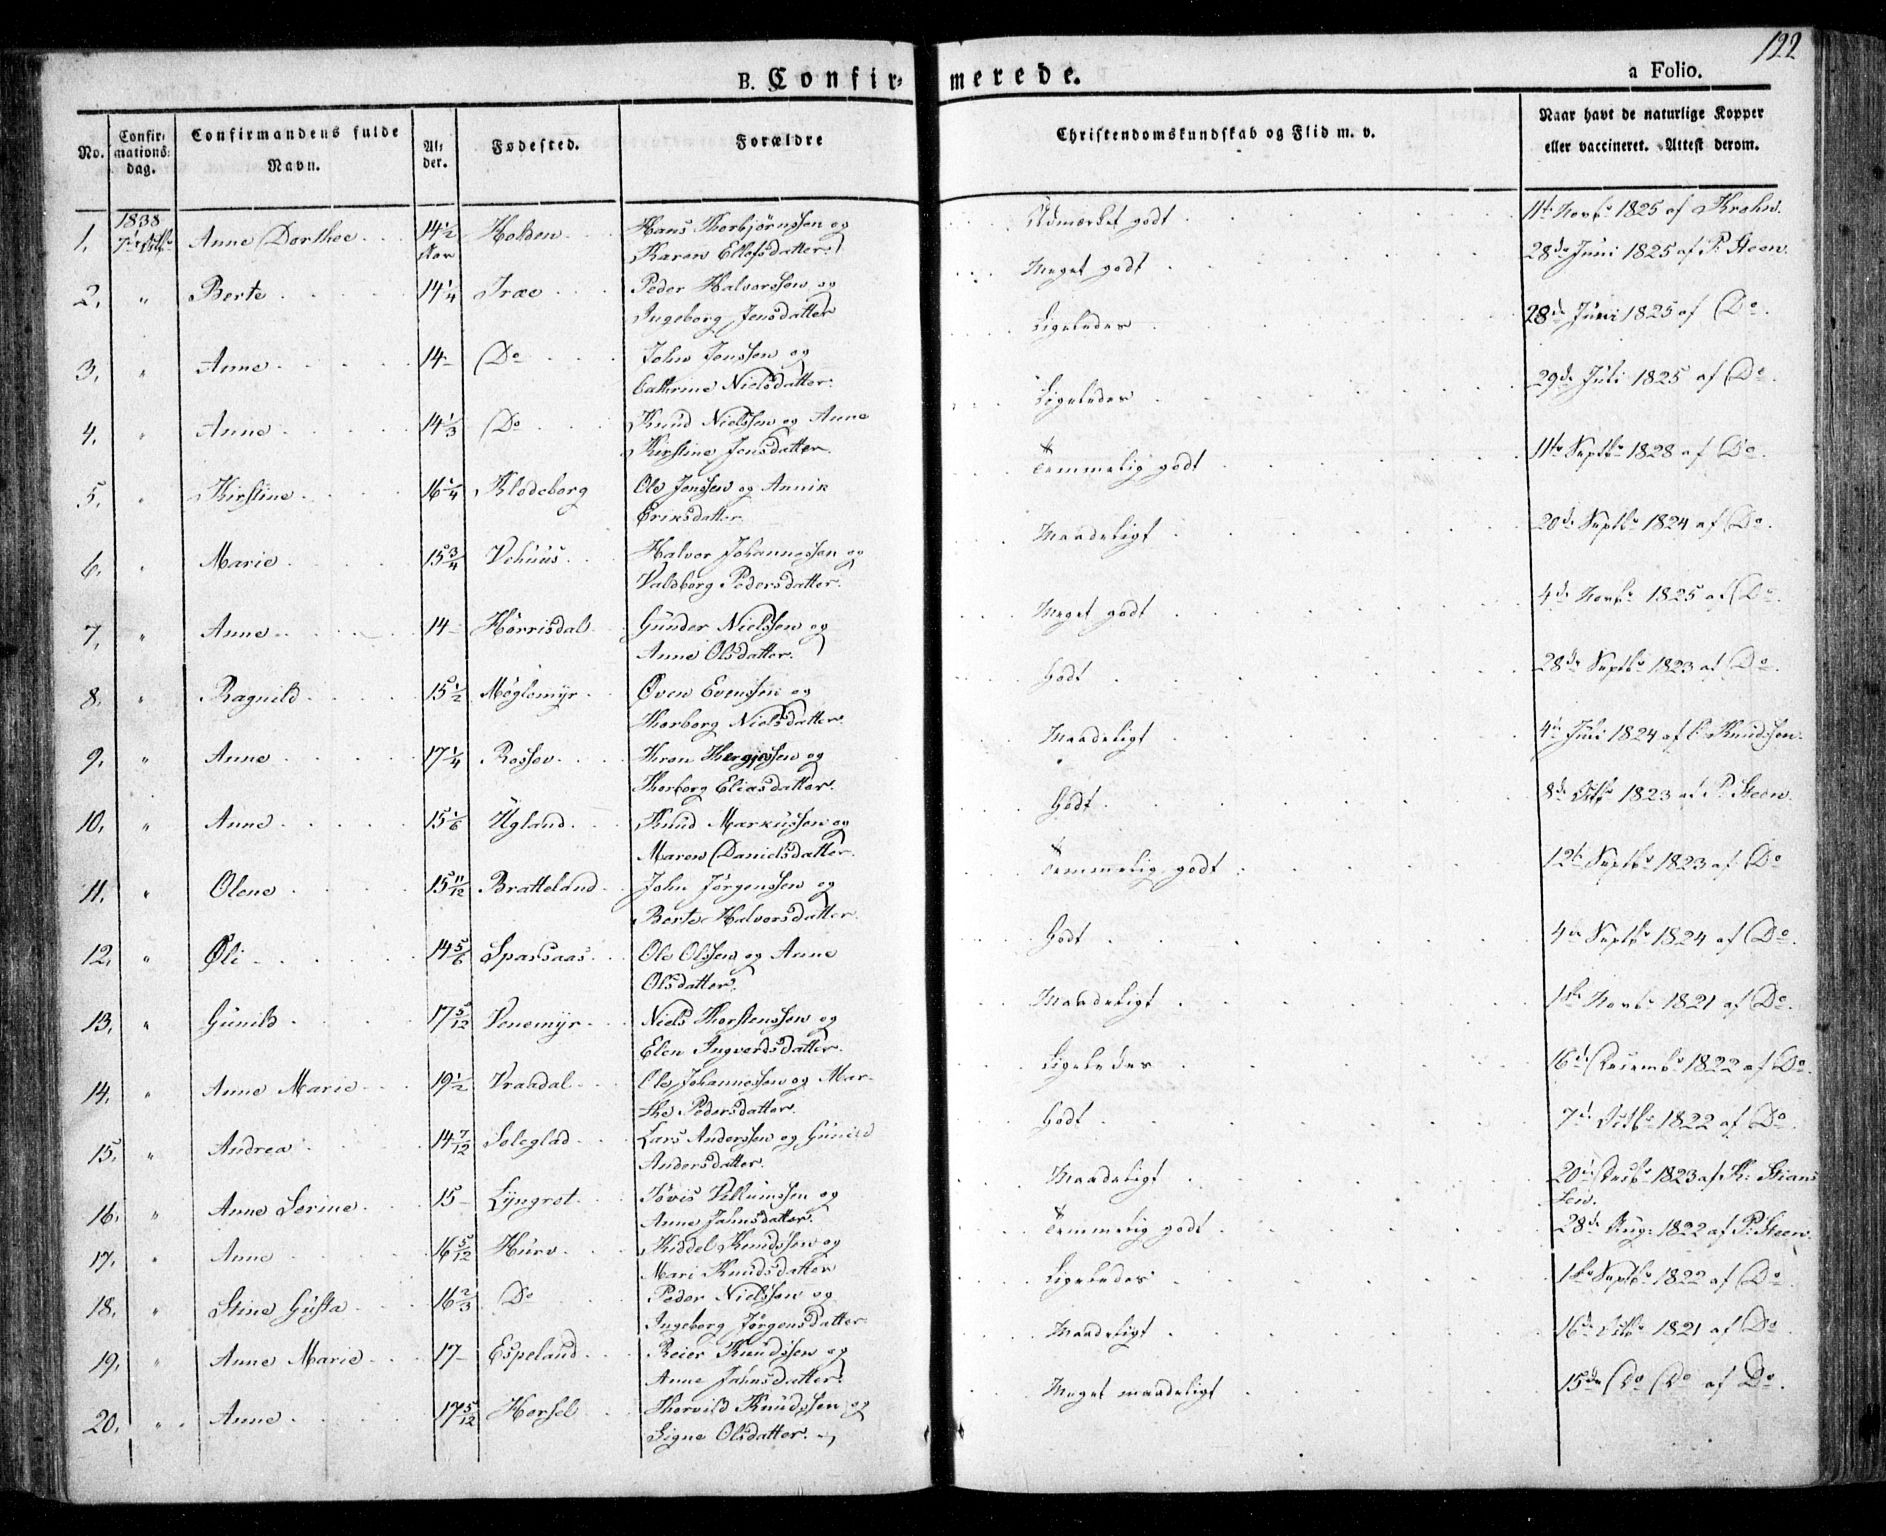 122
B. Confirmerede.
a Folio.
No.
Confirmations: dag.
Confirmandens fulde Navn.
Alder.
Fødested.
Forældre
Christendomskundskab og Flid m. v.
Naar havt de naturlige Kopper eller vaccineret. Attest derom.
1. 1838 7de Octbr Anne Dorthee 14 1/2 Aar Holden Hans Thorbjørnssen og Karen Ellefsdatter. Udmærket godt 11te Novbr 1825 af Krohn.
2. " Berte 14 1/4 Træe Peder Halvorssen og Ingeborg Jensdatter Meget godt 28de Juni 1825 af P. Steen.
3. " Anne 14 - Do John Jenssen og Cathrine Nielsdatter. Ligeledes 28de Juni 1825 af Do.
4. " Anne 14 1/3 Do Knud Nielssen og Anne Kirstine Jensdatter. Ligeledes 29de Juli 1825 af Do.
5. " Kirstine 16 1/4 Klodeborg Ole Jenssen og Annik Eriksdatter Temmelig godt 11te Septbr 1828 af Do.
6. " Marie 15 3/4 Vehuus Halvor Johannessen og Valdborg Pedersdatter. Maadeligt 20de Septbr 1824 af Do.
7. " Anne 14 - Hørrisdal Gunder Nielssen og Anne Olsdatter. Meget godt 4de Novbr 1825 af Do.
8. " Ragnild 15 1/2 Møglemyr Øven Evenssen og Thorborg Nielsdatter. Godt 28de Septbr 1823 af Do.
9. " Anne 17 1/4 Rossev Thron Thergjessen og Thorborg Eliasdatter. Maadeligt 4de Juli 1824 af Knudssen.
10. " Anne 15 1/6 Ugland Knud Markussen og Maren Danielsdatter. Godt 8de Octbr 1823 af P. Steen.
11. " Olene 15 11/12 Bratteland John Jørgenssen og Berte Halvorsdatter. Temmelig godt 12te Septbr 1823 af Do
12. " Øli 14 5/6 Sparsaas Ole Olssen og Anne Olsdatter. Godt 4de Septbr 1824 af Do.
13. " Gunild 17 5/12 Venemyr Niels Thorstenssen og Elen Ingverdsdatter. Maadeligt 1ste Novbr 1821 af Do.
14. " Anne Marie 19 1/2 Vraadal Ole Johannessen og Marthe Pedersdatter. Ligeledes 16de Decembr 1822 af Do
15. " Andrea 14 7/12 Soleglad Lars Anderssen og Gunild Andersdatter. Godt 7de Octbr 1822 af Do
16. " Anne Serine 15 - Lyngrot Tøvis Vellumssen og Anne Jahnsdatter. Maadeligt 20de Decbr 1823 af K. Stianssen.
17. " Anne 16 5/12 Hurv Kiddel Knudssen og Mari Knudsdatter Temmelig godt 28de Aug: 1822 af P. Steen.
18. " Stine Gusta 16 2/3 Do Peder Nielssen og Ingeborg Jørgensdatter Ligeledes 1ste Septbr 1822 af Do
19. " Anne Marie 17 - Espeland Reier Knudssen og Anne Jahnsdatter. Maadeligt 16de Octbr 1821 af Do
20. " Anne 17 5/12 Horsel Thorvild Knudssen og Signe Olsdatter. Meget maadeligt 15de Do Do af Do.